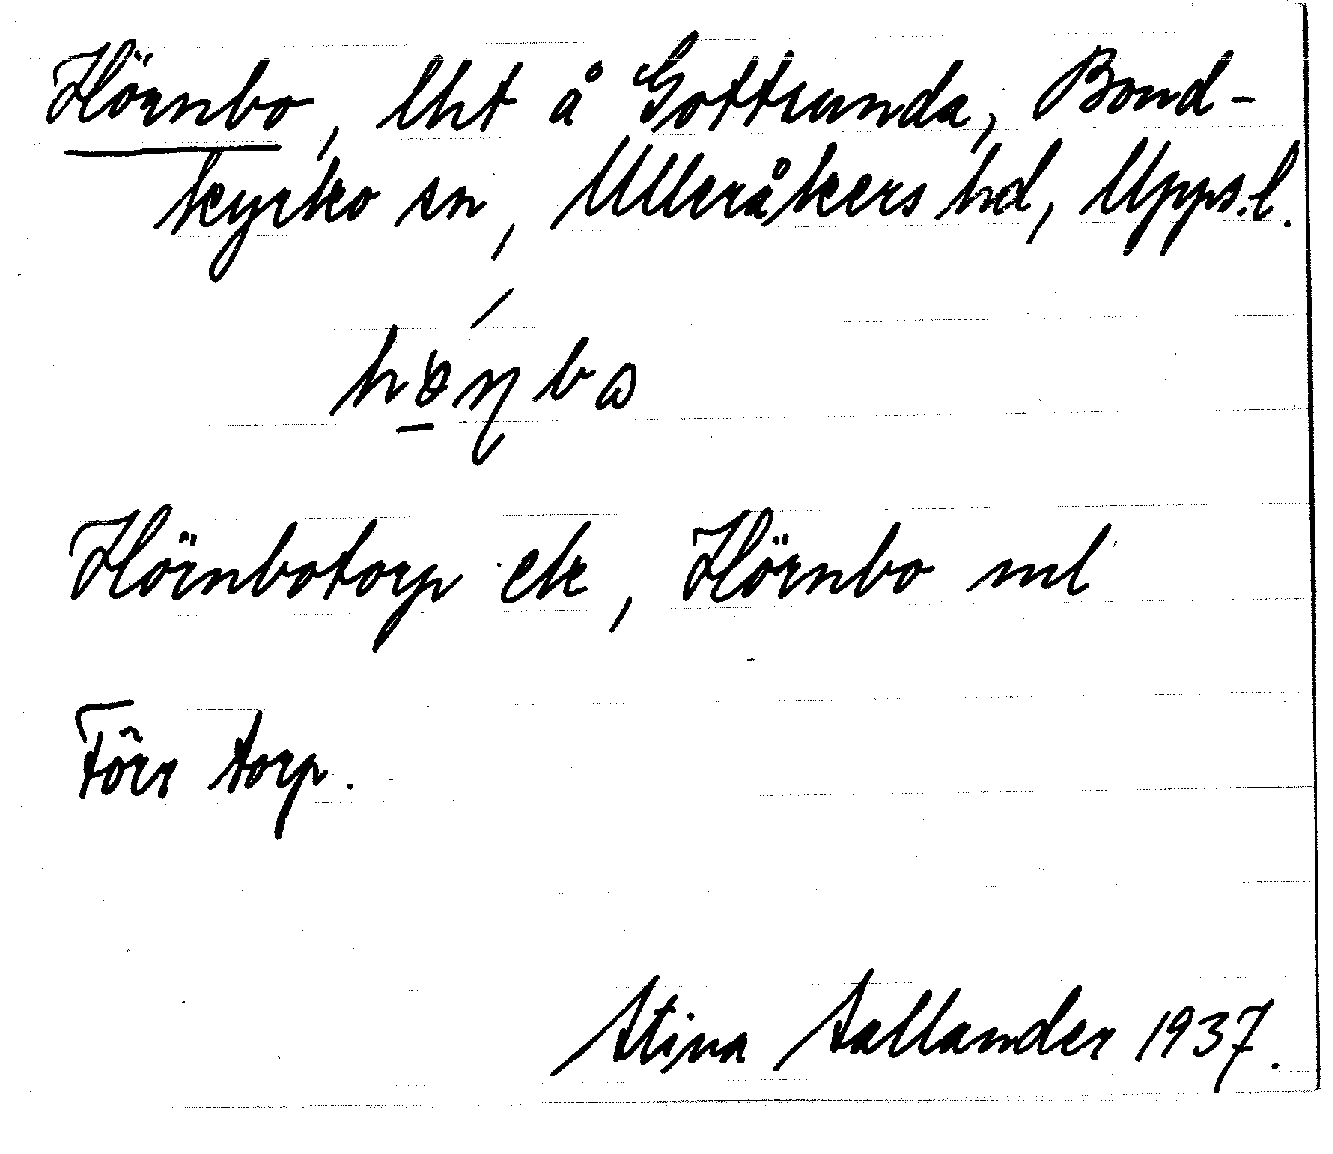 Hörnbo, lht å Gottsunda, Bond-
kyrko sn, Ulleråkers hd, Upps.l.
Hörnbotorp ek, Hörnbo ml
Förr torp.
Stina Sallander 1937.